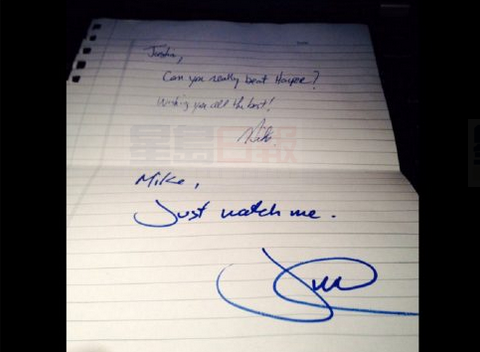 Justin,
Can you really beat Harper?
Wishing you all the best!
Mike
星島日報
Mike,
Just watch me.